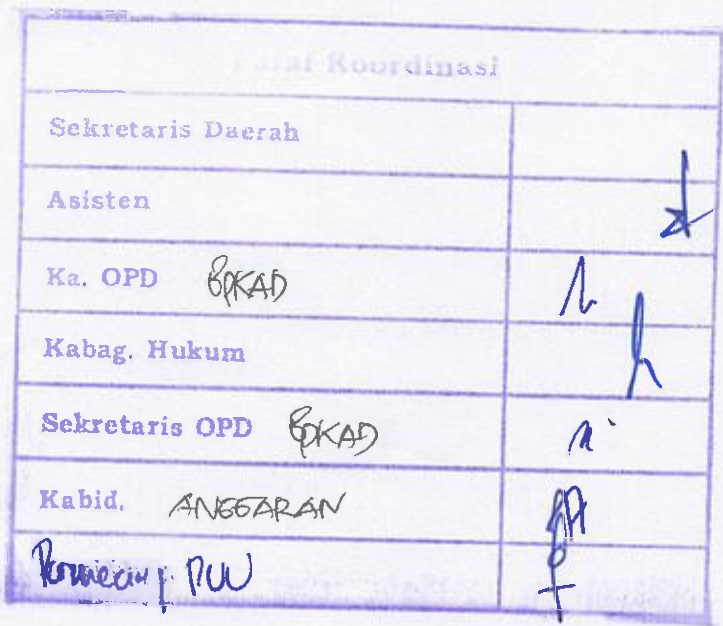 Paraf Koordinasi
Sekretaris Daerah
Asisten
Ka. OPD BPKAD
Kabag. Hukum
Sekretaris OPD BPKAD
Kabid. ANGGARAN
PUU